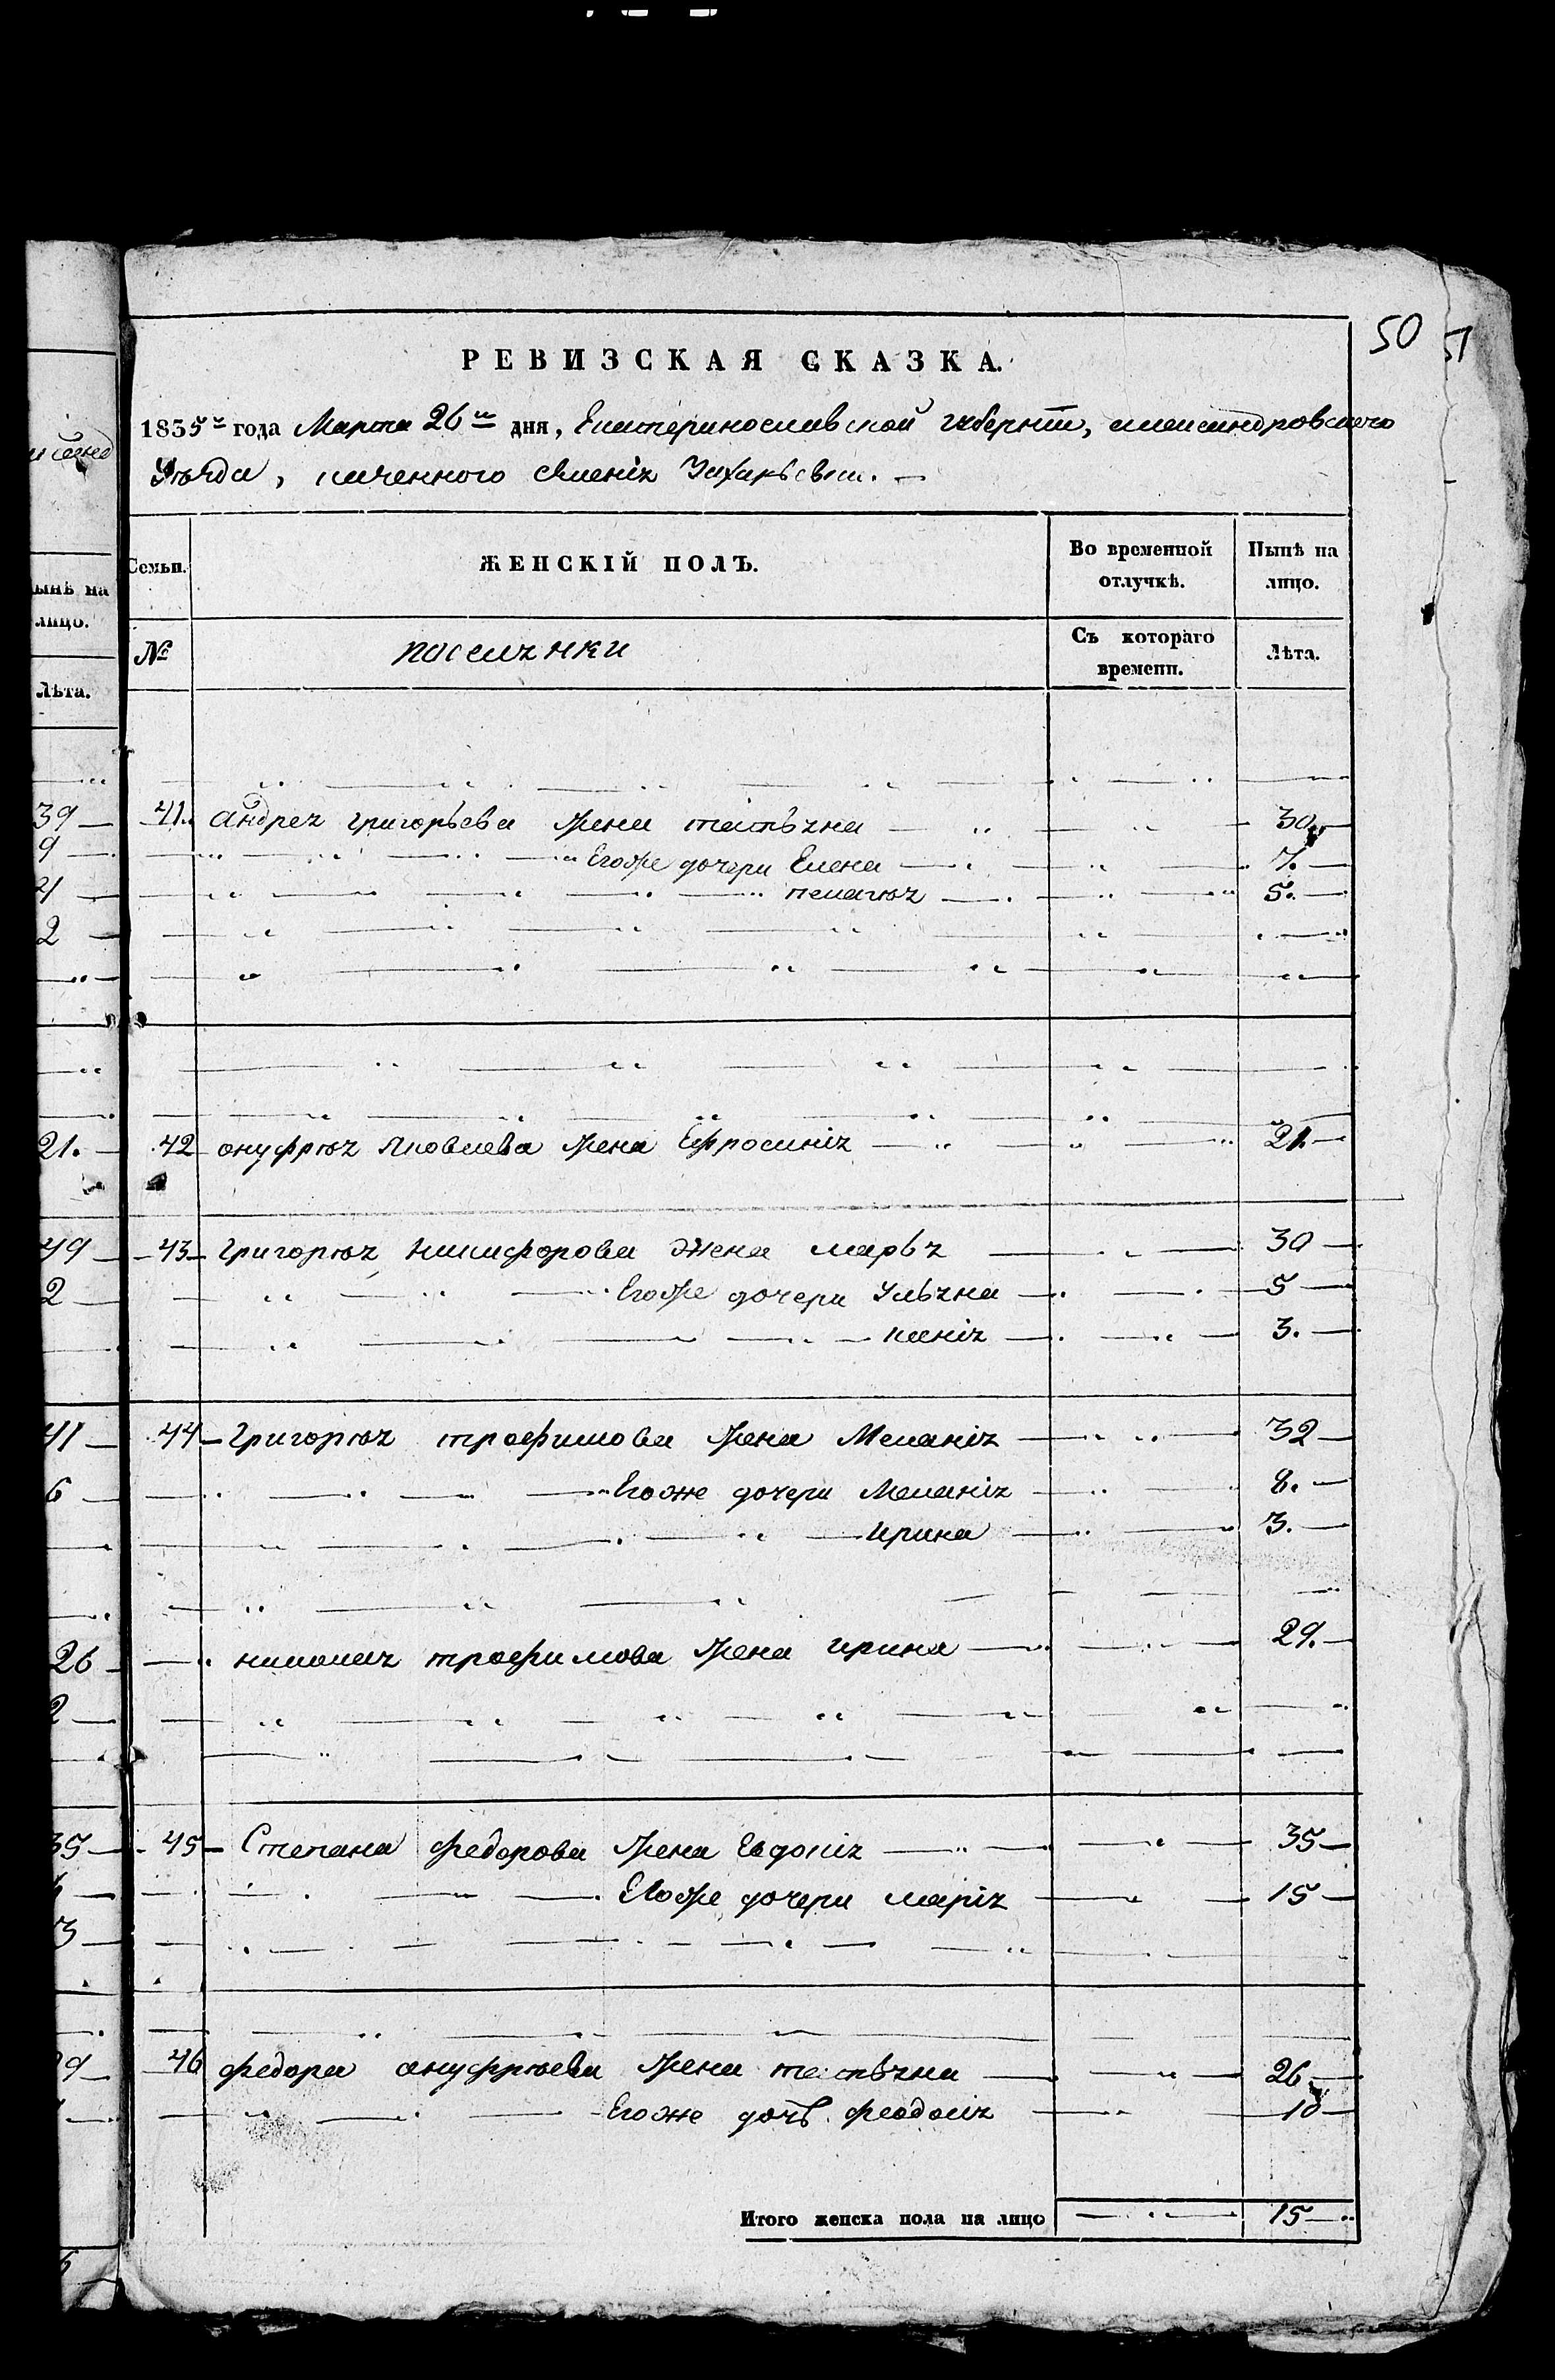 50 51
РЕВИЗСКАЯ СКАЗКА.
1835го года Марта 26го дня, Екатеринославской губерніи, александровского
Уезда, казенного селенія Захарьевки.
Семьи. ЖЕНСКІЙ ПОЛЪ. Во временной отлучкѣ. Нынѣ на лицо.
№ поселянки Съ котораго времени. Лѣта.
ынѣ на
лицо.
Лѣта.
39 41 андрея григорьева жена татьяна 30
9 Егоже дочери Елена 7.
4 пелагея 5.
2
21. 42 онуфрия яковлева жена Ефросинія 21.
49 43 Григория никифорова жена марья 30
2 Егоже дочери Ульяна 5
3.
41 44 Григория трофимова жена Меланія 32
6 Егоже дочери Меланія 8.
ирина 3.
26 николая трофимова жена ирина 29.
2
35 45 Степана федорова жена Евдокія 35
Егоже дочери марія 15
3
9 46 федора онуфриева жена татьяна 26
Егоже дочь феодосія 10
Итого женска пола на лицо 15